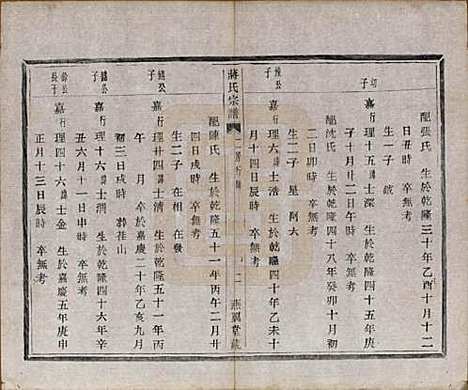 配張氏 生於乾隆三十年乙酉十月十二
日丑時 卒無考
生一子
子
嘉行理十五 士深 生於乾隆四十五年庚
子十月廿二日午時 卒無考
配沈氏 生於乾隆四十八年癸卯十月初
二日卯時 卒無考
生二子 星 阿大
子
嘉行理六 士浩 生於乾隆四十年乙未十
月十四日辰時 卒無考
蔣氏宗譜
燕翼堂藏
配陳氏 生於乾隆五十一年丙午二月廿
四日戌時 卒無考
生二子 在相 在發
子
嘉行理廿四 士清 生於乾隆五十一年丙
午 月 時 卒於嘉慶二十年乙亥九月
初三日戌時 葬祖山
子
嘉行理十六 士清 生於乾隆四十六年辛
丑六月十一日申時 卒無考
長子
嘉行理四十六 士金 生於嘉慶五年庚申
正月十三日辰時 卒無考